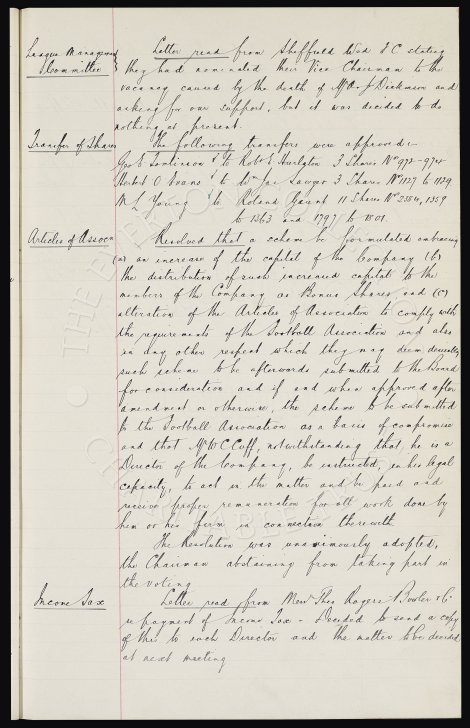 League Management Letter read from Sheffield Wed F C stating
Committee they had nominated their Vice Chairman to the
vacancy caused by the death of Mr A J Dickinson and
asking for our support, but it was decided to do
nothing at present.
Transfer of Shares The following transfers were approved:-
Geo E Tomlinson to Robt E Hurlston 3 Shares Nos 972-974
Herbert O Evans to Wm Jas Sawyer 3 Shares Nos 1127 to 1129
M L Young to Roland Gaunt 11 Shares Nos 2584, 1359
to 1363 and 1797 to 1801.
Articles of Assocn Resolved that a scheme be formulated embracing
(a) an increase of the capital of the Company (b)
the distribution of such increased capital to the
members of the Company as Bonus Shares and (c)
alteration of the Articles of Association to comply with
the requirements of the Football Association and also
in any other respect which they may deem desirable,
such scheme to be afterwards submitted to the Board
for consideration and if and when approved after
amendment or otherwise, the scheme to be submitted
to the Football Association as a basis of compromise
and that Mr W C Cuff, notwithstanding that he is a
Director of the Company, be instructed, in his legal
capacity, to act in the matter and be paid and
receive proper remuneration for all work done by
him or his firm in connection therewith
The Resolution was unanimously adopted,
the Chairman abstaining from taking part in
the voting
Income Tax Letter read from Messrs Theo Rogers Bowler & Co
re payment of Income Tax - Decided to send a copy
of this to each Director and the matter to be decided
at next meeting